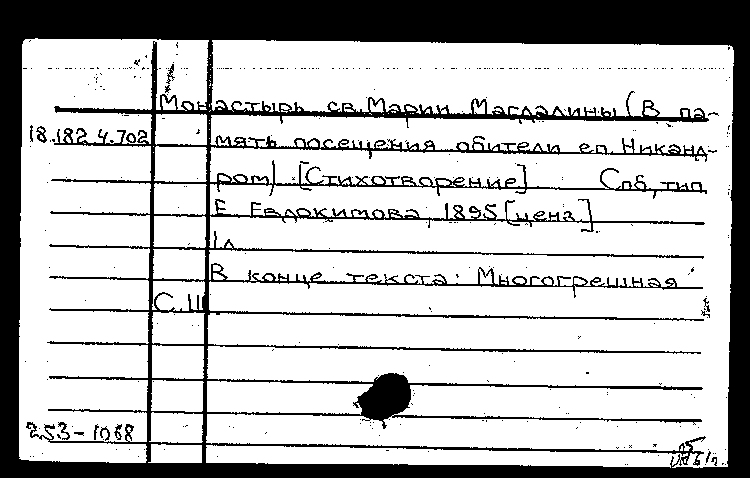 Монастырь св. Марии Магдалины (В па-
18.182.4.702 мять посещения обители еп. Никанд-
ром) [Стихотворение] Спб, тип.
Е. Евдокимова, 1895 [ценз.]
1л
В конце текста: Многогрешная
С. Ш
253-1068